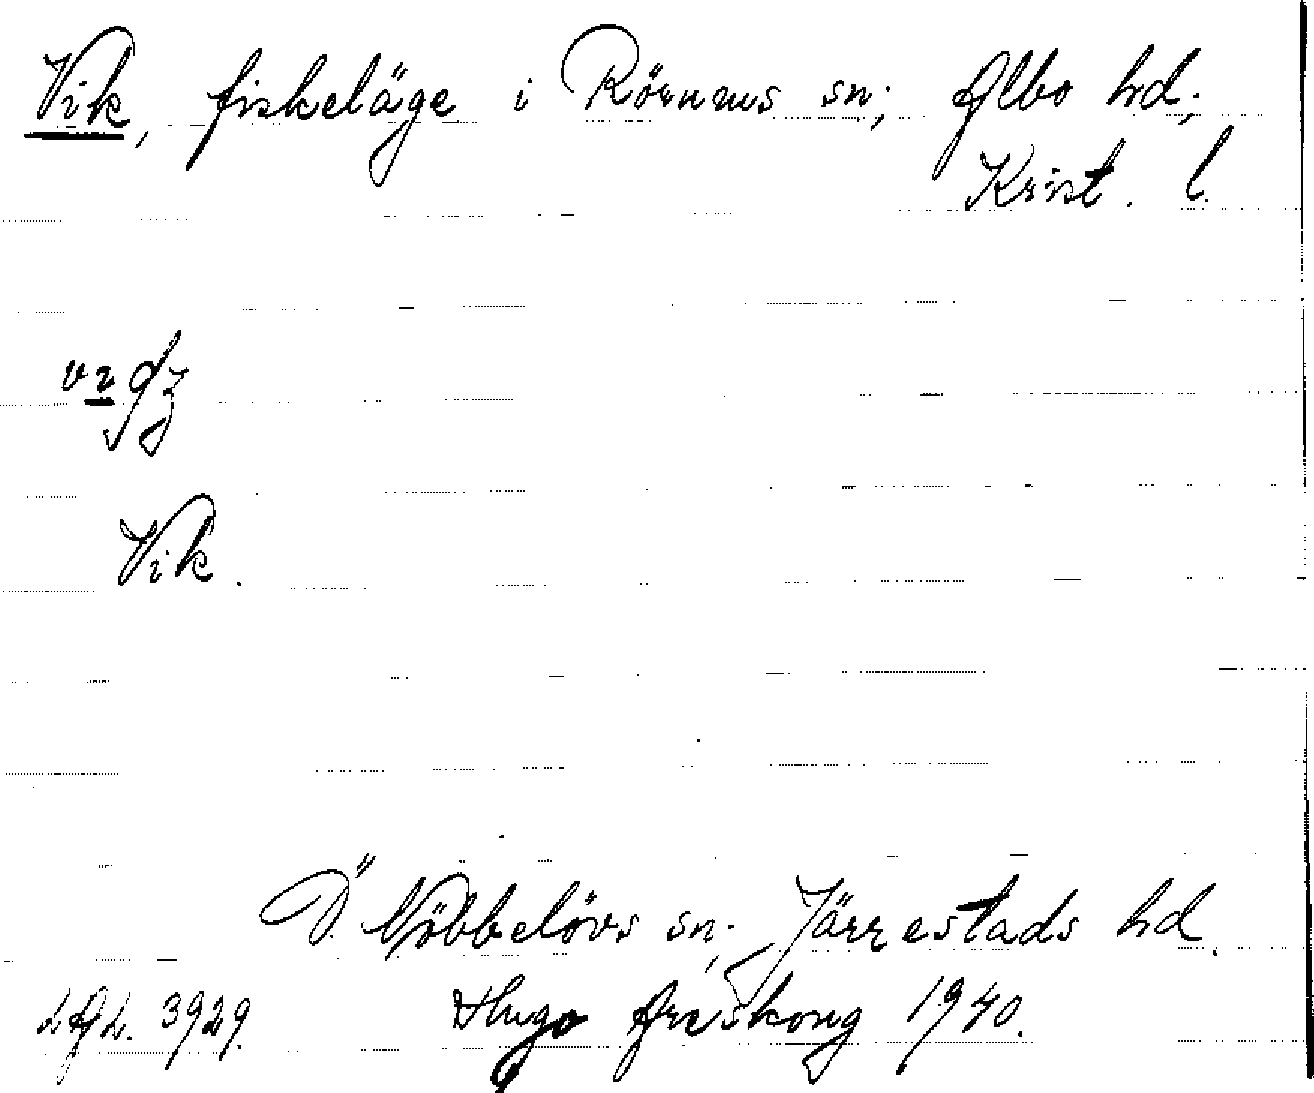 Vik, fiskeläge i Rörums sn; Albo hd;
Krist. l.
Vik.
Ö. Nöbbelövs sn; Järrestads hd.
LAL. 3929. Hugo Areskoug 1940.